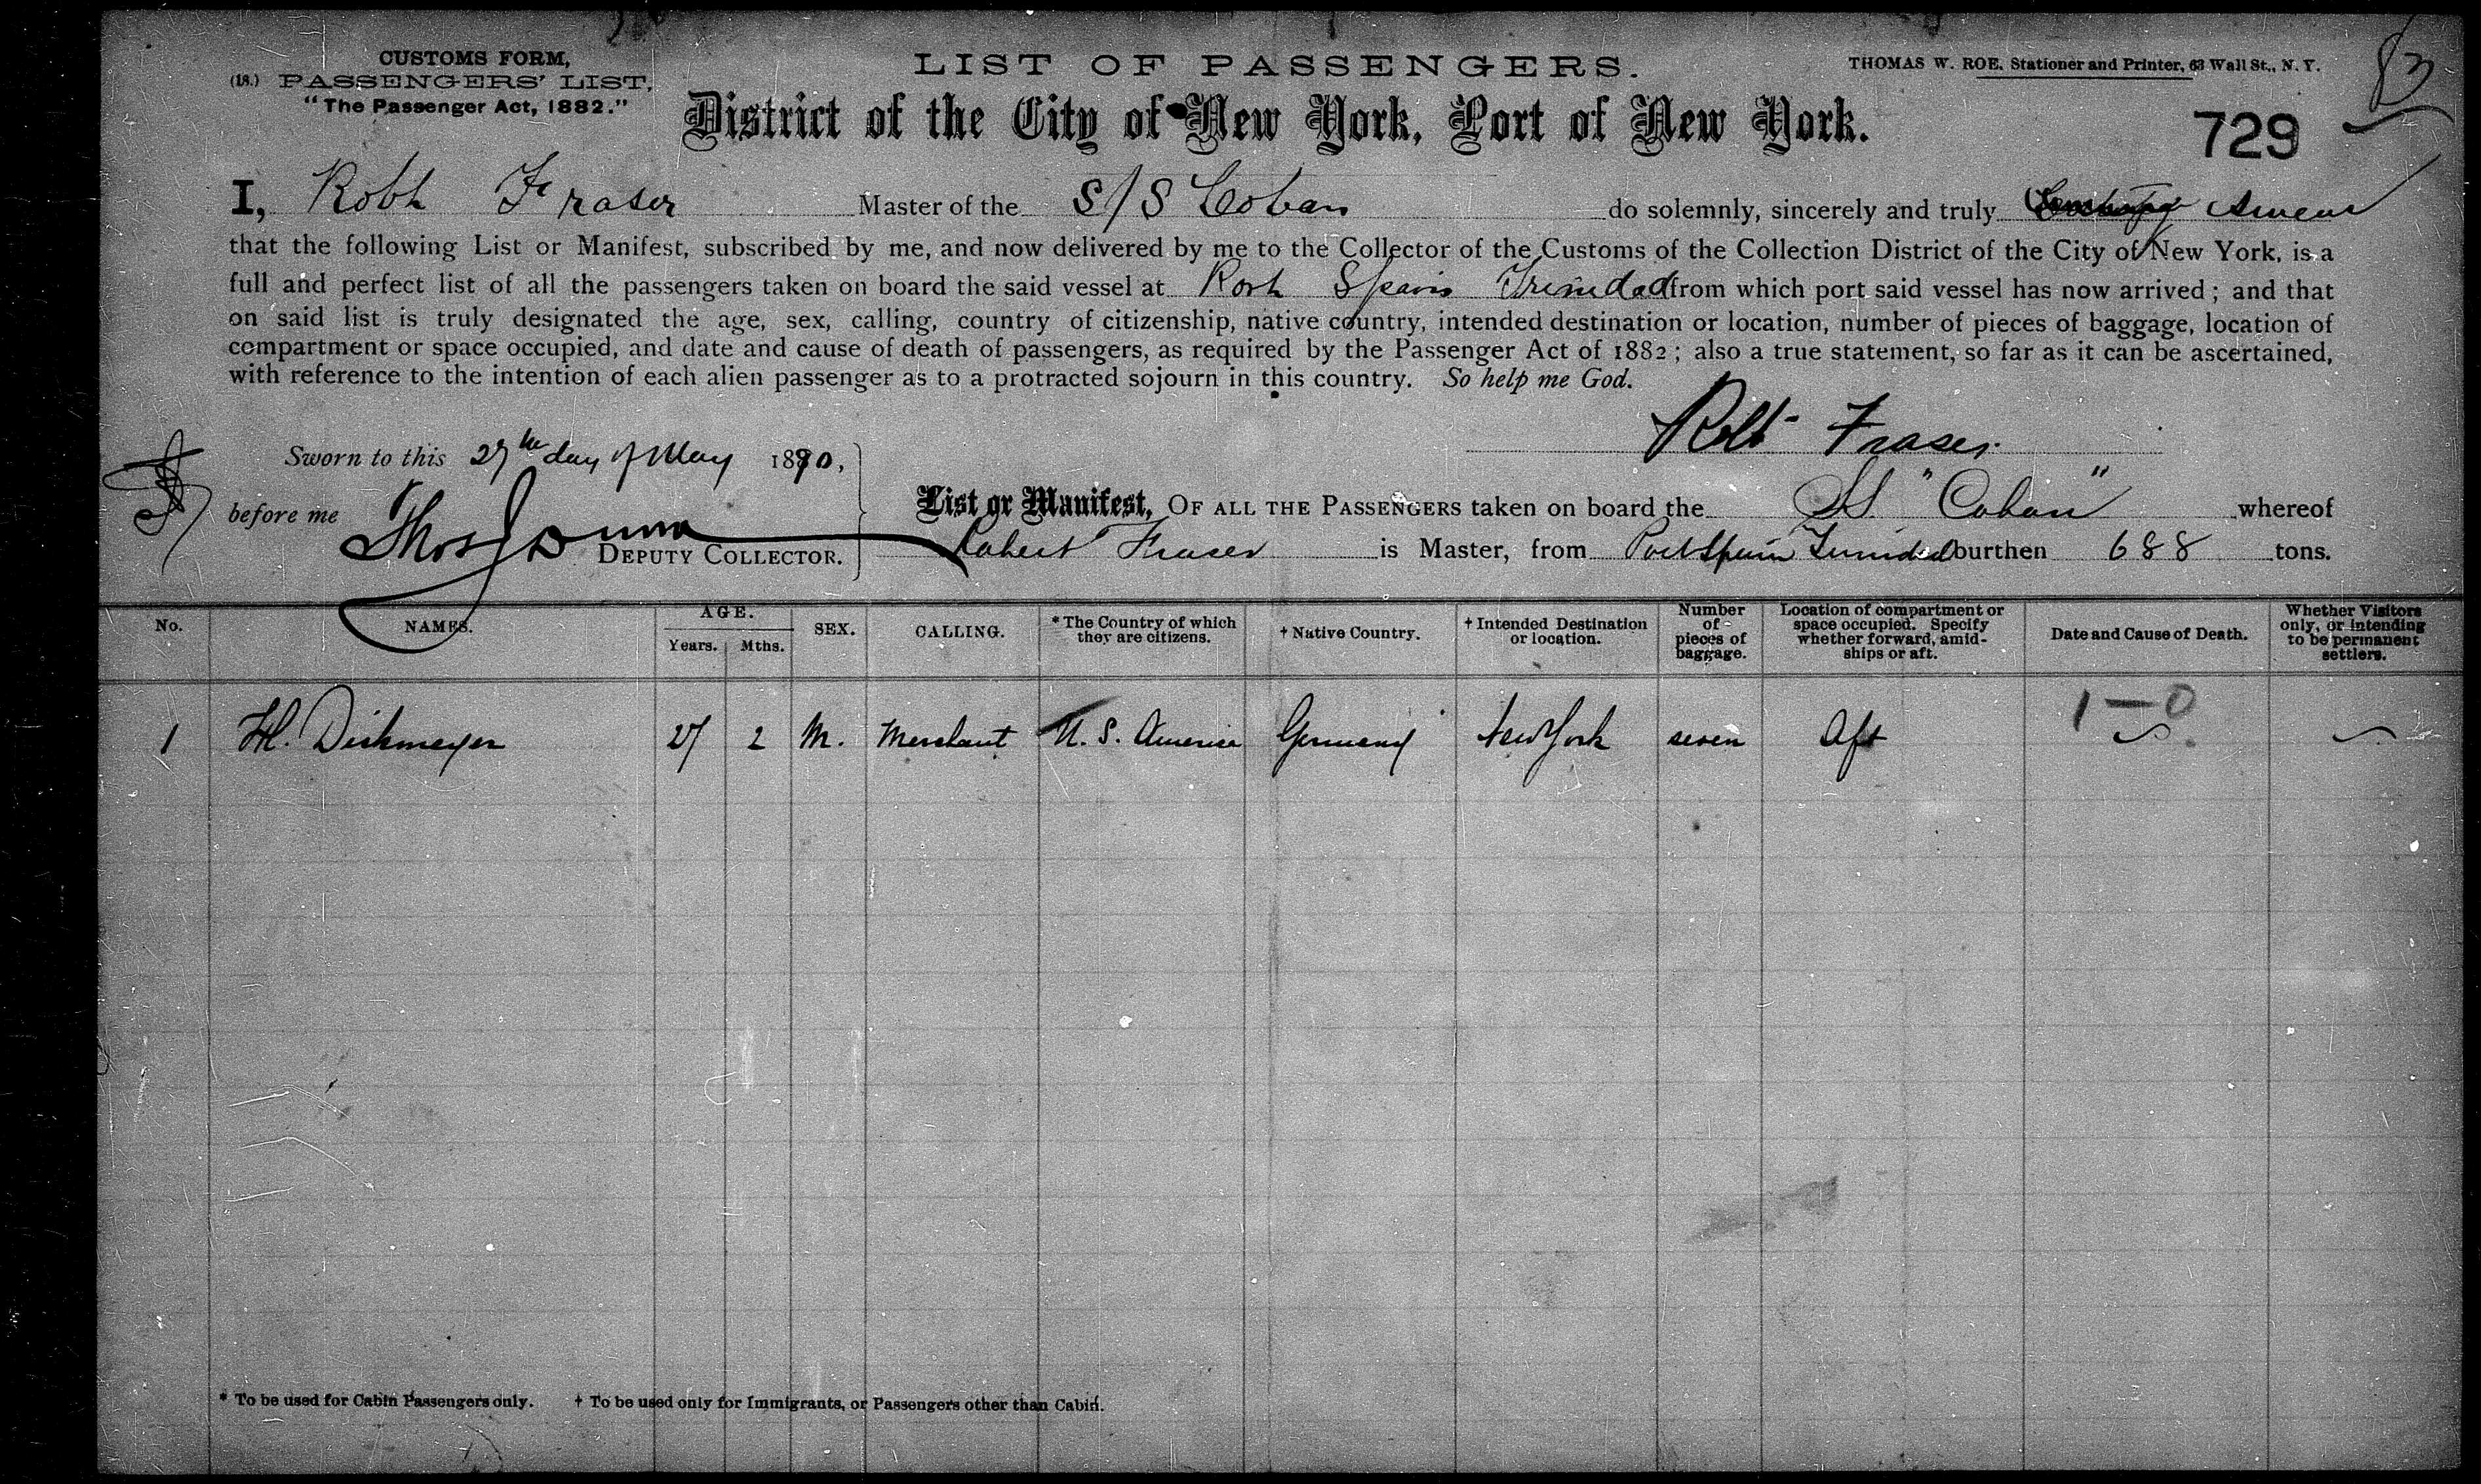 CUSTOMS FORM,
(18.) PASSENGERS' LIST,
"The Passenger Act, 1882."
LIST OF PASSENGERS.
THOMAS W. ROE, Stationer and Printer, 63 Wall St., N. Y.
83
District of the City of New York, Port of New York.
729
I, Robt Fraser Master of the S/S Coban do solemnly, sincerely and truly swear
that the following List or Manifest, subscribed by me, and now delivered by me to the Collector of the Customs of the Collection District of the City of New York, is a
full and perfect list of all the passengers taken on board the said vessel at Port Spain Trinidad from which port said vessel has now arrived; and that
on said list is truly designated the age, sex, calling, country of citizenship, native country, intended destination or location, number of pieces of baggage, location of
compartment or space occupied, and date and cause of death of passengers, as required by the Passenger Act of 1882; also a true statement, so far as it can be ascertained,
with reference to the intention of each alien passenger as to a protracted sojourn in this country. So help me God.
Robt Fraser
Sworn to this 27th day of May 1890,
before me Thos J Dunn
DEPUTY COLLECTOR.
List or Manifest, OF ALL THE PASSENGERS taken on board the SS. "Coban" whereof
Robert Fraser is Master, from Port Spain Trinidad burthen 688 tons.
No. NAMES. AGE. Years. Mths. SEX. CALLING. *The Country of which they are citizens. †Native Country. †Intended Destination or location. Number of pieces of baggage. Location of compartment or space occupied. Specify whether forward, amidships or aft. Date and Cause of Death. Whether Visitors only, or intending to be permanent settlers.
1—0
1 H. Diekmeyer 27 2 M. Merchant U. S. America Germany New York seven Aft
* To be used for Cabin Passengers only. † To be used only for Immigrants, or Passengers other than Cabin.